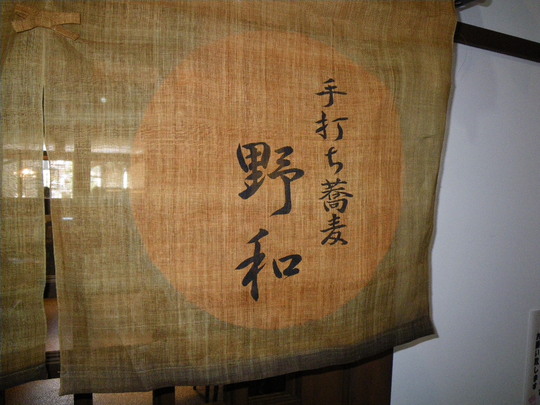 手打ち蕎麦
野和